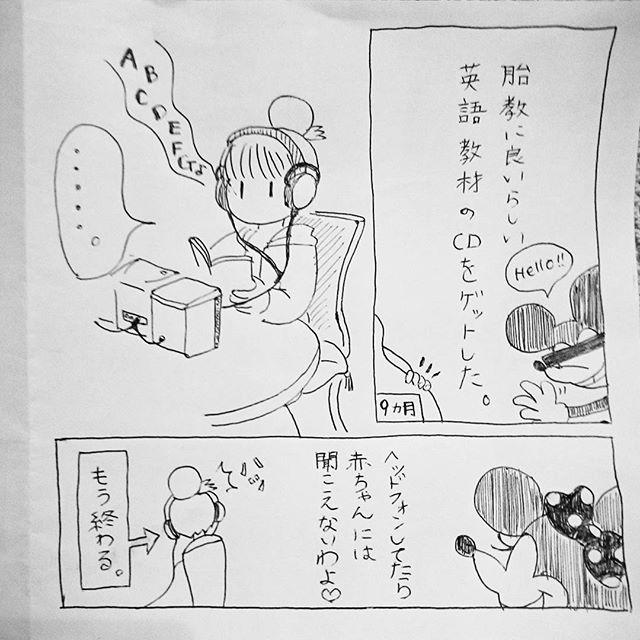 胎教に良いらしい
英語教材のCDをゲットした。
Hello!!
9ヵ月
ABCDEF
・・・・・・。
ヘッドフォンしてたら
赤ちゃんには
聞こえないわよ♡
もう終わる。